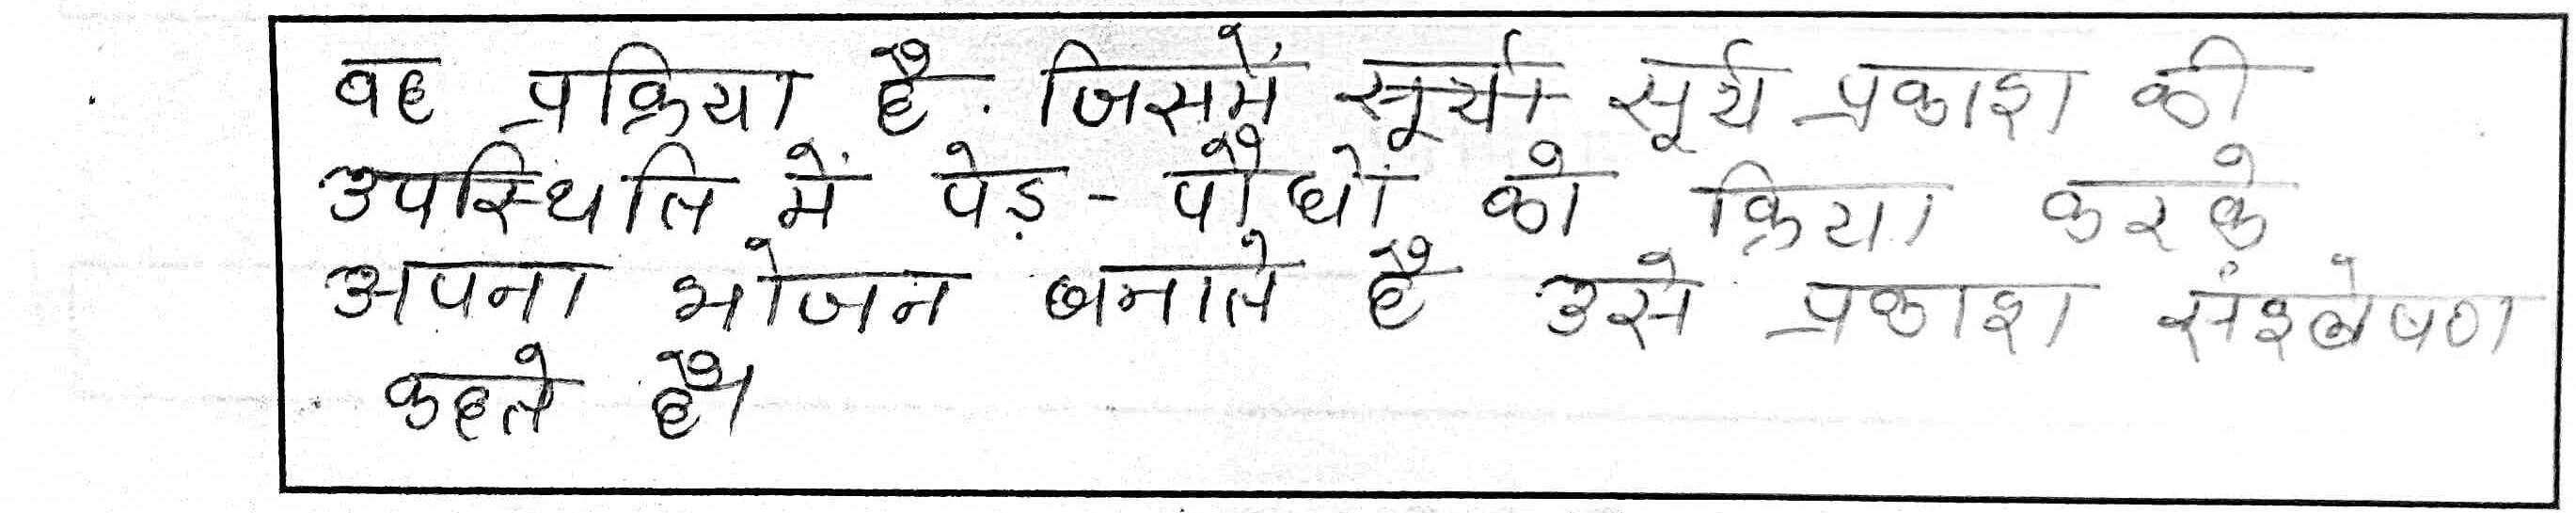 वह प्रक्रिया है. जिसमें सूर्य सूर्य प्रकाश की
उपस्थिति में पेड़ - पौधों को क्रिया करके
अपना भोजन बनाते है उसे प्रकाश संश्लेषण
कहते है।